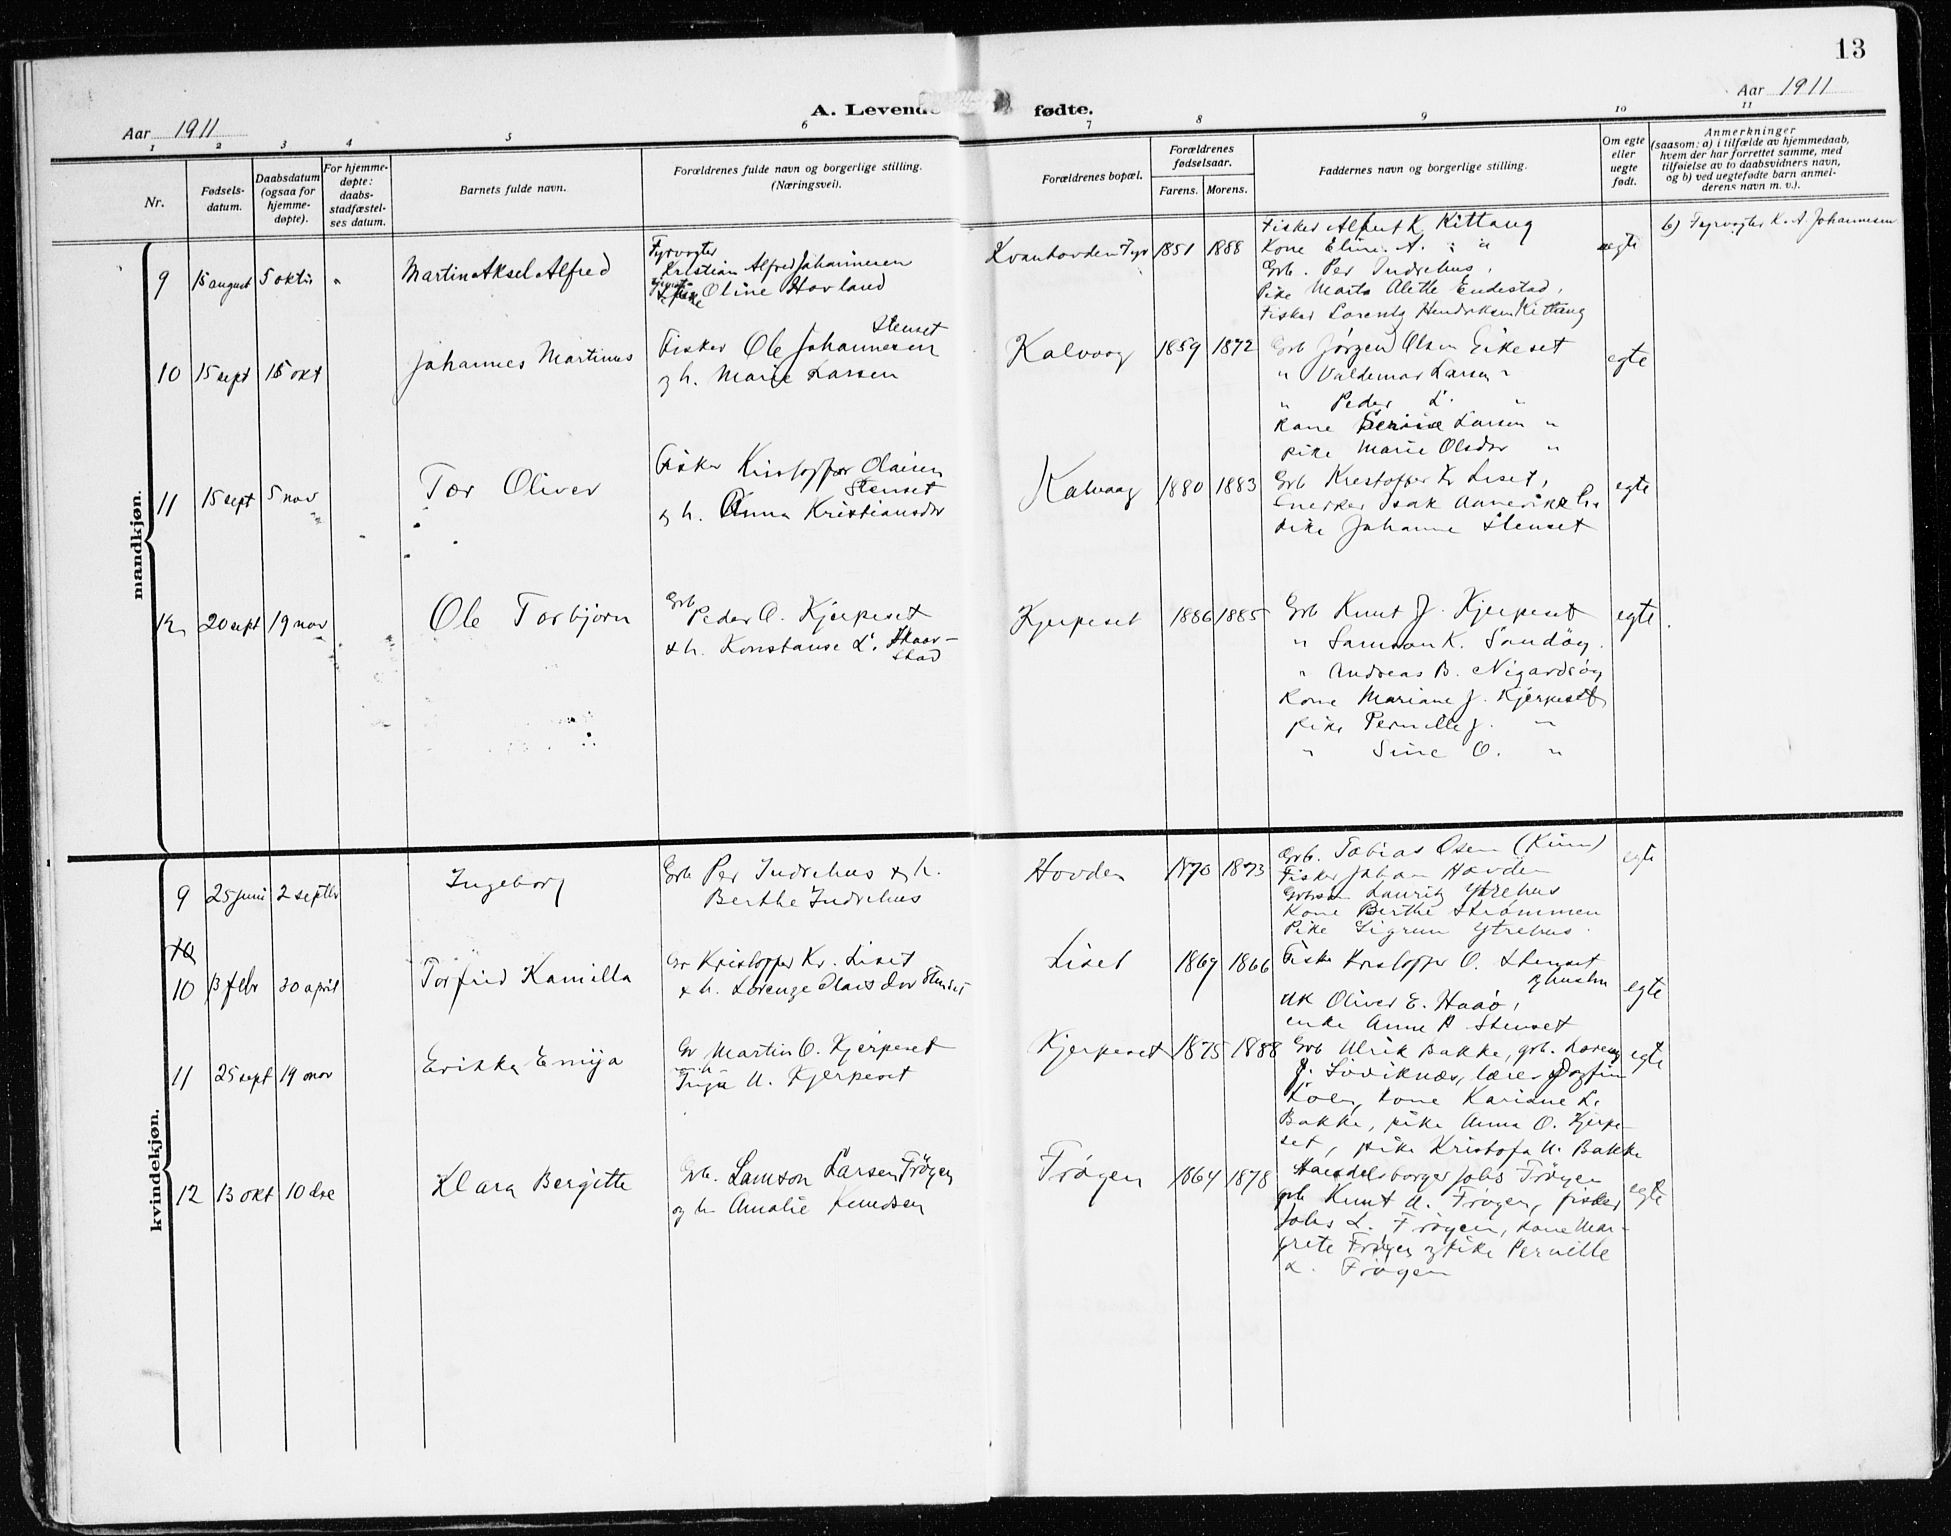 13
Aar 1911
A. Levende fødte.
Aar 1911
1 2 3 4 5 6 7 8 9 10 11
Nr.
Fødsels-
datum.
Daabsdatum
(ogsaa for
hjemme-
døpte).
For hjemme-
døpte:
daabs-
stadfæstel-
ses datum.
Barnets fulde navn.
Forældrenes fulde navn og borgerlige stilling.
(Næringsvei).
Forældrenes bopæl.
Forældrenes
fødselsaar.
Farens. Morens.
Faddernes navn og borgerlige stilling.
Om egte
eller
uegte
født.
Anmerkninger
(saasom: a) i tilfælde av hjemmedaab,
hvem der har forrettet samme, med
tilføielse av to daabsvidners navn,
og b) ved uegtefødte barn anmel-
derens navn m. v.).
mandkjøn.
9 15 august 5 oktb "
Martin Aksel Alfred
Fyrvogter
Kristian Alfred Johannesen
Oline Hovland
Kvanhovden Fyr 1851 1888
Fisker Albert K Kittang
Kone Eline A. " "
Grb. Per Indrehus,
Pike Marta Alette Endestad,
Fisker Lorentz Hendriksen Kittang
egte
b) Fyrvogter K. A Johannesen
10 15 sept 15 okt
Johannes Martinus
Fisker Ole Johannesen
Stenset
og h. Marie Larsen
Kalvaag 1859 1872
Grb Jørgen Olsen Eikeset
" Valdemar Larsen "
" Peder L. "
Kone Larsen "
pike Marie Olsdor "
egte
11 15 sept 5 nov
Tor Oliver
Fisker Kristoffer Olaisen
Stenset
og h. Anna Kristiansdor
Kalvaag 1880 1883
Grb Krestoffer Kr Liset,
Snerker Isak
pike Johanne Stenset
egte
12 20 sept 19 nov
Ole Torbjørn
Grb
Peder O. Kjerpeset
& h. Konstanse L. Skaar-
stad
Kjerpeset 1886 1885
Grb Knut J. Kjerpeset
" Samson K. Sandöy.
" Andreas B. Nigardsöy
Kone Mariane J. Kjerpeset
pike Pernille J. "
" Sine O. "
egte
kvindekjøn.
9 25 juni 2 septbr
Ingeborg
Grb Per Indrehus & h.
Berthe Indrehus
Hovden 1870 1873
Grb. Tobias Osen (Kinn)
Fisker Johan Hovden
Grbsøn Lauritz Ytrehus
Kone Berthe Strømmen
Pike Sigrun Ytrehus.
egte
10
10 13 febr 30 april
Torfrid Kamilla
Gr Kristoffer Kr. Liset
& h. Lorenze Olaisdor Stenset
Liset 1869 1866
Fisker Kristoffer O. Stenset
og hustru
uk Oliver E. Haaö,
enke Anne P Stenset
egte
11 25 sept 19 nov
Erikka Emija
Gr Martin O. Kjerpeset
& h
Inga U. Kjerpeset
Kjerpeset 1875 1888
Grb Ulrik Bakke, grb. Lorens
J. Löviknæs, lærer Dagfin
Loen, kone Kariane L.
Bakke, pike Anna O. Kjerpe-
set, pike Kristofa U. Bakke
egte
12 13 okt 10 dse
Klara Bergitte
Grb. Samson Larsen Fröyen
og h Amalie Knudsen
Fröyen 1864 1878
Handelsborger Johs Fröyen
grb Knut A. Fröyen, fisker
Johs L. Fröyen, kone Mar-
grete Fröyen og pike Pernille
L. Fröyen
egte